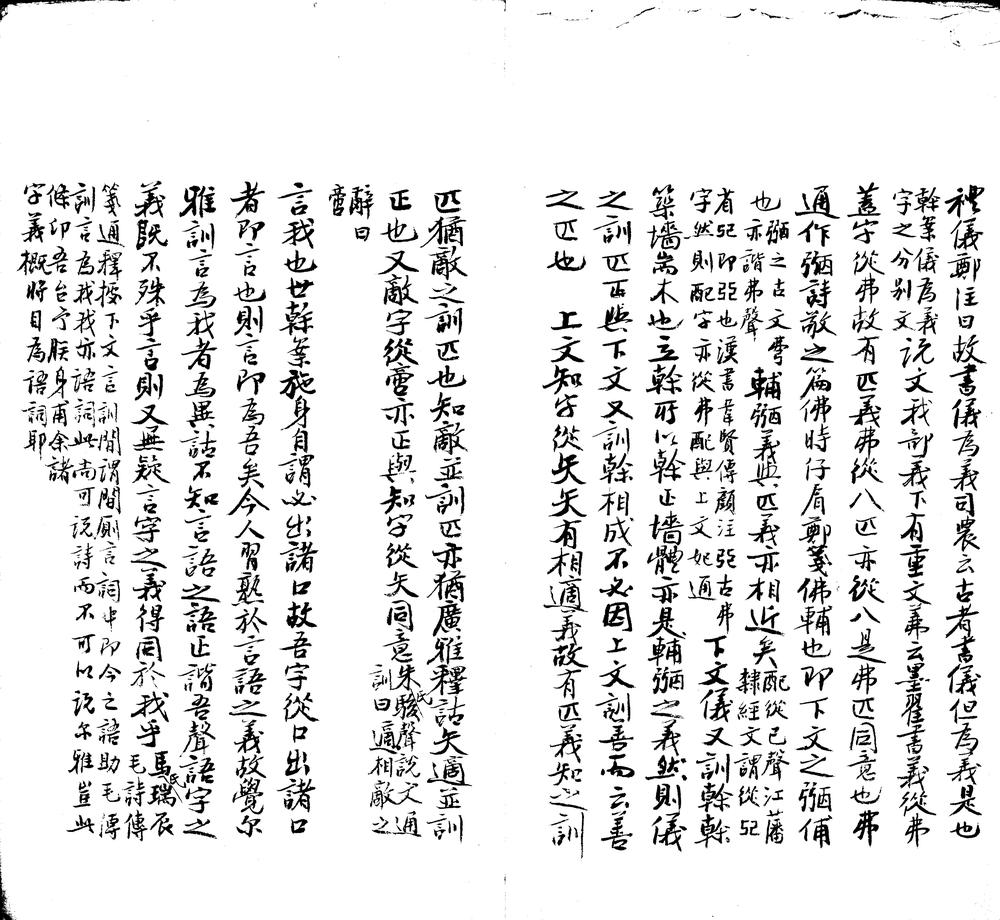 禮儀鄭注曰故書儀為義司農云古者書儀但為義是也
幹案儀為義
字之分别文
説文我部義下有重文羛云墨翟書義從弗
蓋字從弗故有匹義弗從八匹亦從八是弗匹同意也弗
通作弼詩敬之篇佛時仔肩鄭箋佛輔也即下文之弼俌
也
弼之古文
亦諧弗聲
輔弼義與匹義亦相近矣
配從己聲江藩
隸經文謂從㔾
者㔾即亞也漢書韋賢傳顏注亞古弗
字然則配字亦從弗配與上文妃通
下文儀又訓幹幹
築墻耑木也立幹所以幹正墻體亦是輔弼之義然則儀
之訓匹正與下文又訓幹相成不必因上文訓善而云善
之匹也 上文知字從矢矢有相適義故有匹義知之訓
匹猶敵之訓匹也知敵並訓匹亦猶廣雅釋詁矢適並訓
正也又敵字從啻亦正與知字從矢同意
朱氏駿聲説文通
訓曰適相敵之
辭曰
啻
言我也世幹案施身自謂必出諸口故吾字從口出諸口
者即言也則言即為吾矣今人習熟於言語之義故覺尔
雅訓言為我者為異詁不知言語之語正諧吾聲語字之
義既不殊乎言則又無疑言字之義得同於我乎
馬氏瑞辰
毛詩傳
箋通釋據下文言訓間謂間廁言詞中即今之語助毛傳
訓言為我我亦語詞此尚可説詩而不可以説尔雅豈此
條卬吾台予朕身甫余諸
字義概將目為語詞耶